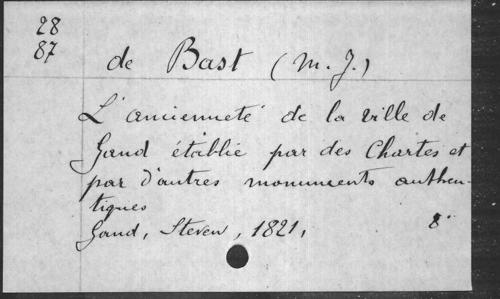 28
87
de Bast (M. J.)
L'ancienneté de la ville de
Gand établie par des Chartes et
par d'autres monuments authen-
tiques
Gand, Steven, 1821, 8°